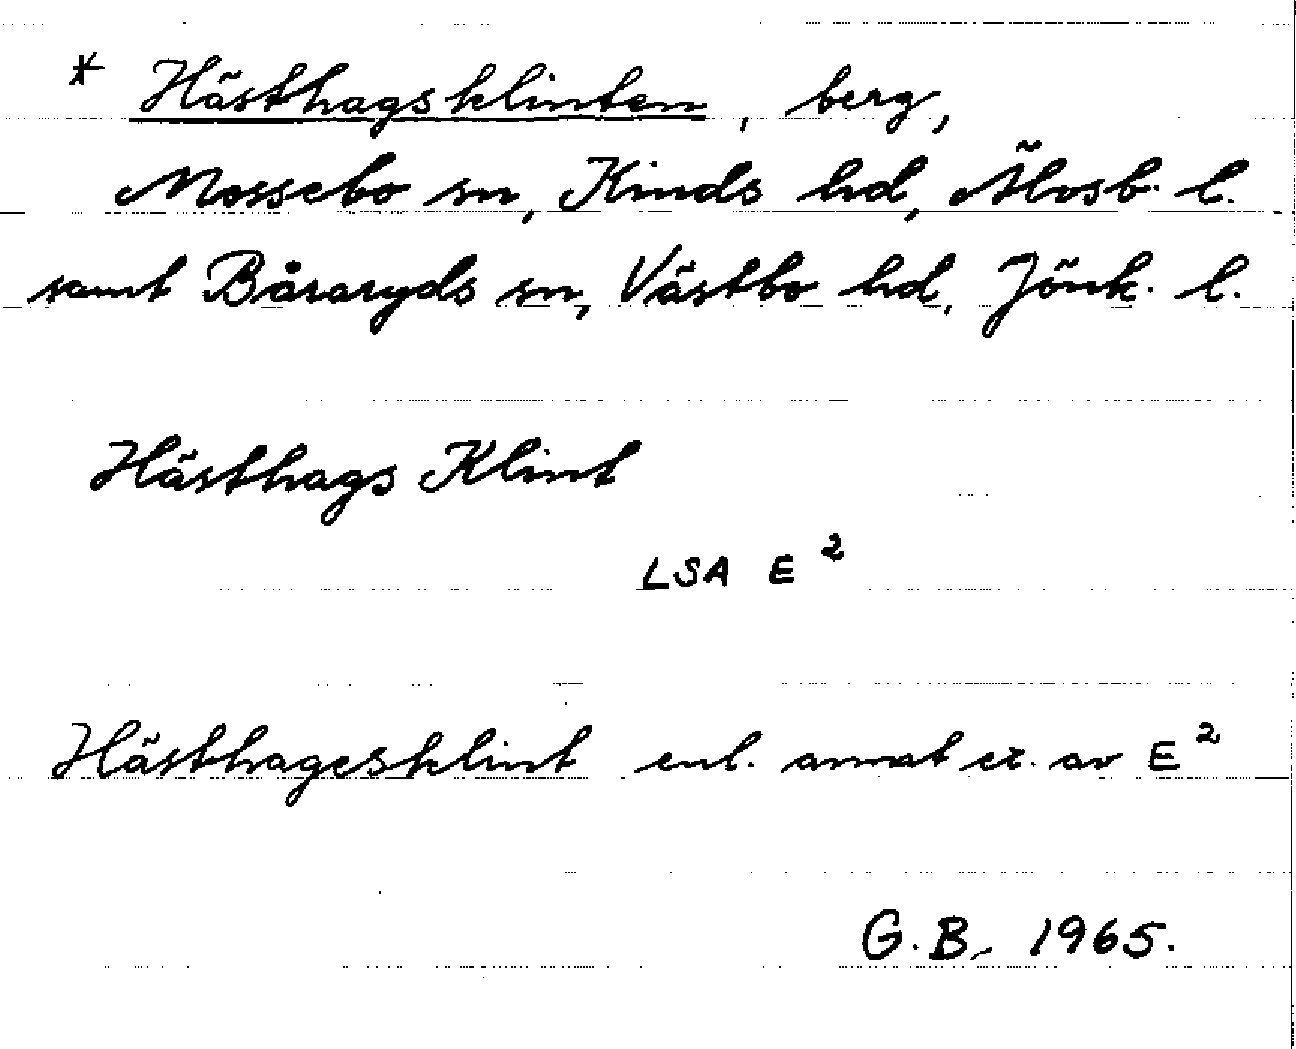 * Hästhagsklinten, berg,
Mossebo sn, Kinds hd, Älvsb. l.
samt Båraryds sn, Västbo hd, Jönk. l.
Hästhags Klint
LSA E²
Hästhagesklint enl. annat ex. av E²
G.B. 1965.